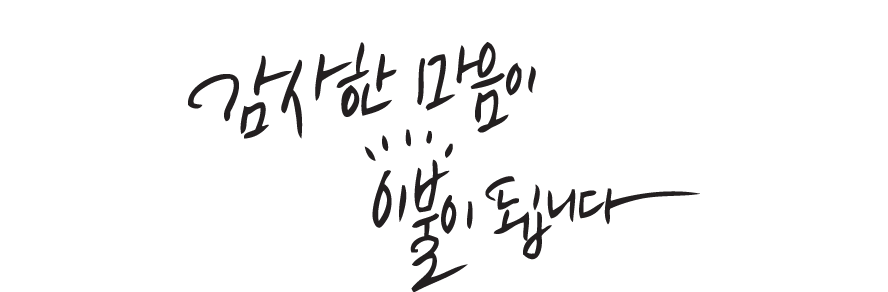 감사한 마음이
이불이 됩니다